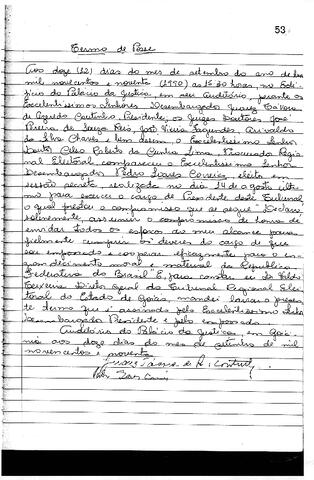 53
Termo de Posse
Aos doze (12) dias do mes de setembro do ano de hum
mil novecentos e noventa (1990) às 16:30 horas, no Edi-
fício do Palácio da Justiça em seu Auditório, perante os
Excelentíssimos Senhores Desembargador Juarez Távora
de Azeredo Coutinho, Presidente, os Juízes Doutores José
Pereira de Souza Reis, José Vieira Fagundes, Arivaldo
da Silva Chaves e, bem assim, o Excelentíssimo Senhor
Doutor Celso Roberto da Cunha Lima, Procurador Regio-
nal Eleitoral compareceu o Excelentíssimo Senhor
Desembargador Pedro Soares Correia, eleito em
sessão secreta, realizada no dia 14 de agosto últi-
mo para exercer o cargo de Presidente deste Tribunal
o qual prestou o compromisso que se segue: "Declaro
solenemente, assumir o compromisso de honra de
envidar todos os esforços ao meu alcance para
fielmente cumprir os deveres do cargo de que
sou empossado e cooperar eficazmente para o en-
grandecimento moral e material da República
Federativa do Brasil" E, para constar eu
Ferreira Diretor Geral do Tribunal Regional Elei-
toral do Estado de Goiás, mandei lavrar o presen-
te termo que é assinado pelo Excelentíssimo
Desembargador Presidente e pelo empossado.
Auditório do Palácio da Justiça, em Goiâ-
nia aos doze dias do mes de setembro de mil
novecentos e noventa